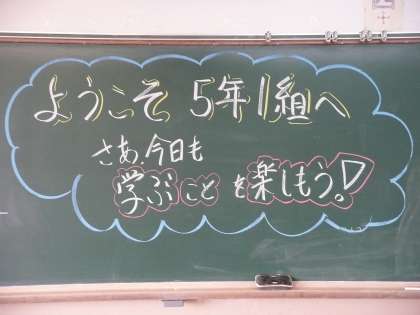 ようこそ 5年1組へ
さあ、今日も
学ぶことを楽しもう!